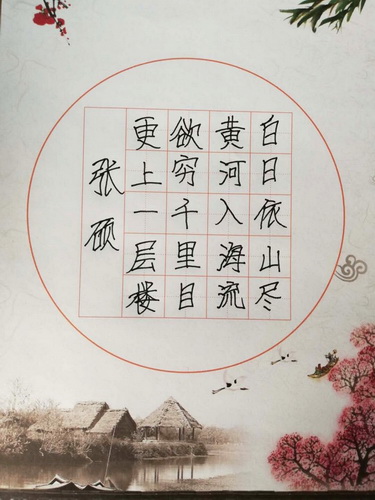 白日依山尽
黄河入海流
欲穷千里目
更上一层楼
张硕